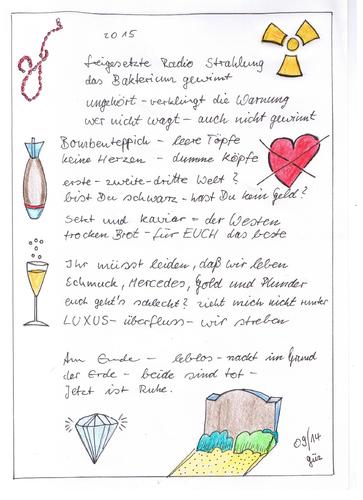 2015
freigesetzte Radio Strahlung
das Bakterium gewinnt
ungehört - verklingt die Warnung
wer nicht wagt - auch nicht gewinnt
Bombenteppich - leere Töpfe
keine Herzen - dumme Köpfe
erste - zweite - dritte Welt?
bist Du schwarz - hast Du kein Geld?
Sekt und Kaviar = der Westen
trocken Brot - für EUCH das beste
Ihr müsst leiden, daß wir leben
Schmuck, Mercedes, Gold und Plunder
euch geht's schlecht? zieht mich nicht runter
LUXUS - überfluss - wir streben
Am Ende - leblos - nackt im Grund
der Erde - beide sind tot -
Jetzt ist Ruhe.
09/14
güz